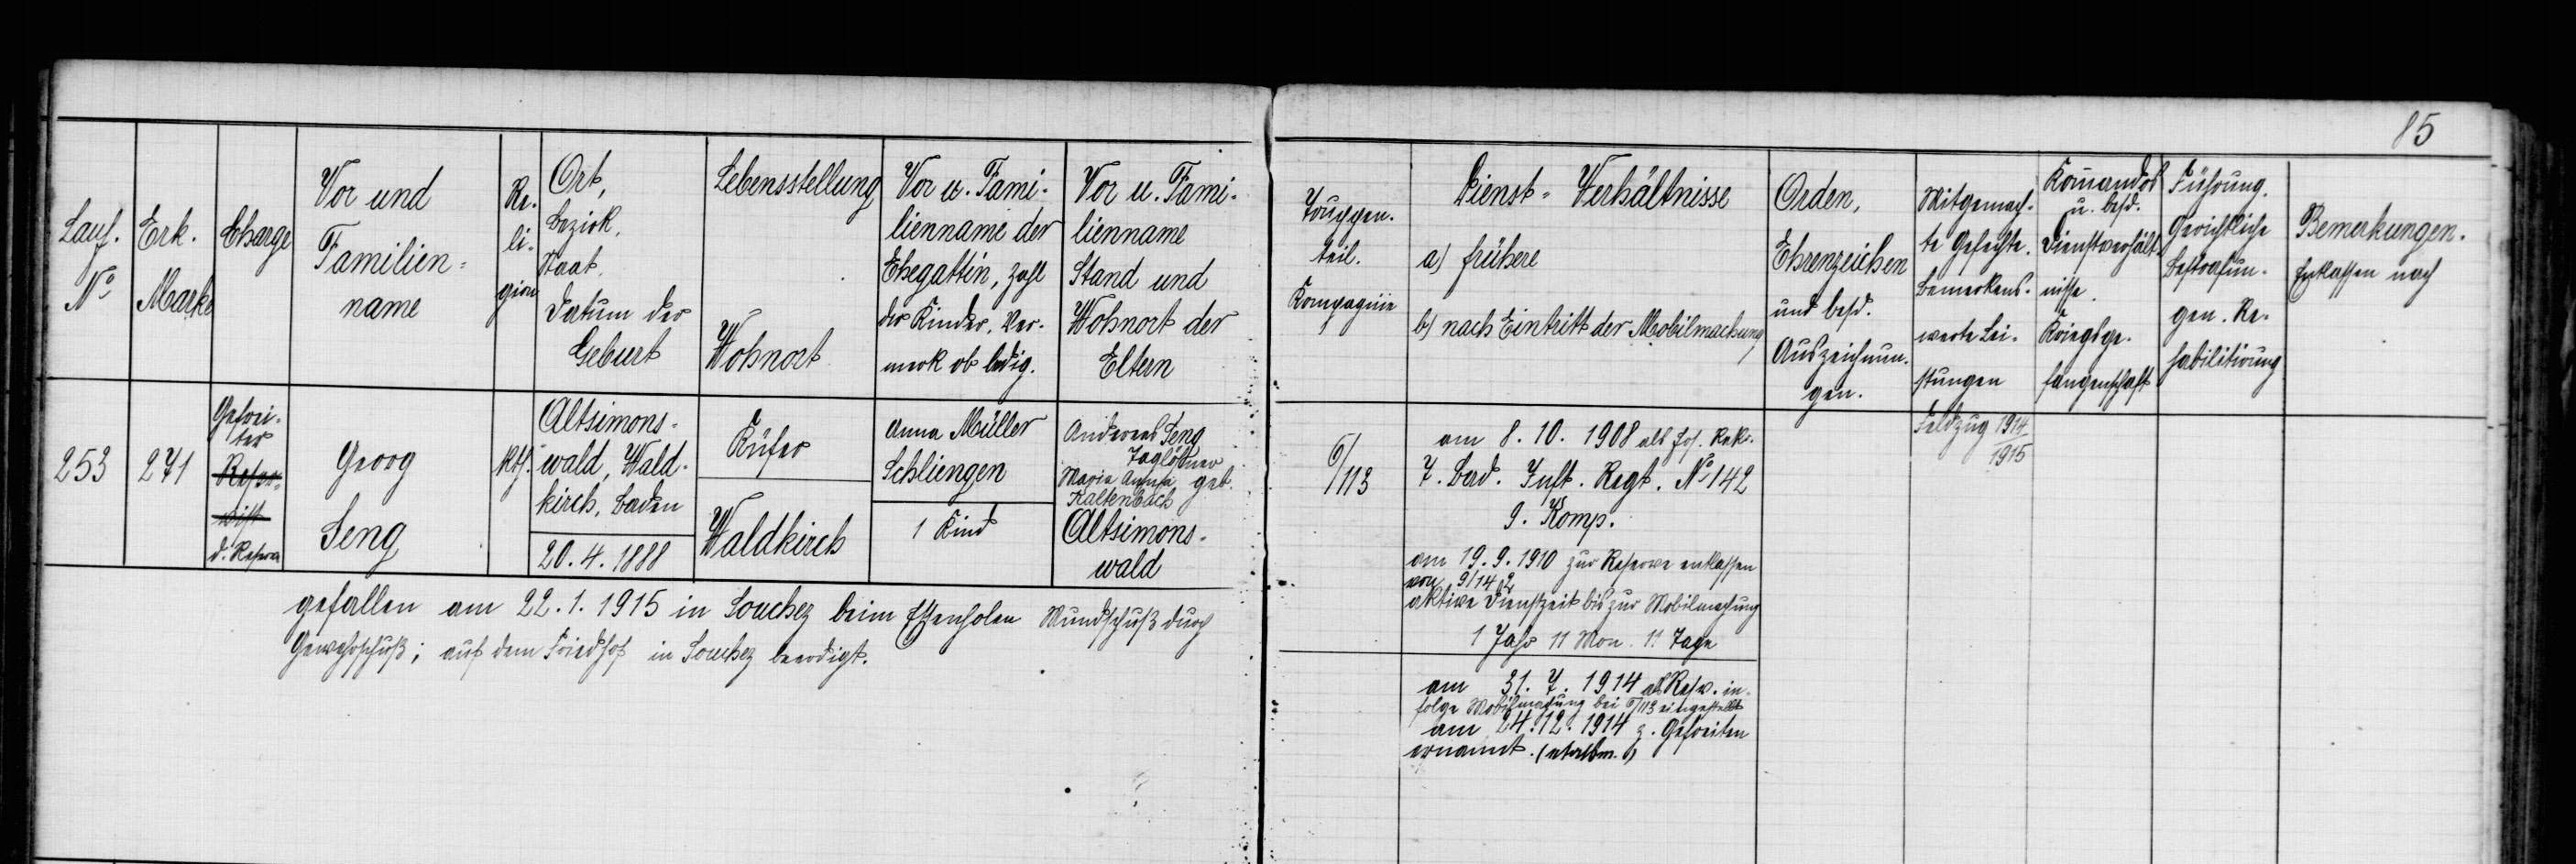 85
Lauf.
No
Erk.
Marke
Charge
Vor und
Familien=
name
Re-
li-
gion
Ort,
Bezirk,
Staat,
Datum der
Geburt
Lebensstellung
Wohnort
Vor u. Fami-
lienname der
Ehegattin, Zahl
der Kinder. Ver-
merk ob ledig.
Vor u. Fami-
lienname
Stand und
Wohnort der
Eltern
Truppen-
teil.
Kompagnie
Dienst=Verhältnisse
a) frühere
b) nach Eintritt der Mobilmachung
Orden,
Ehrenzeichen
und besd.
Auszeichnun-
gen.
Mitgemach-
te Gefechte.
Bemerkens-
werte Lei-
stungen
Komandos
u. besd.
Dienstverhält-
nisse.
Kriegsge-
fangenschaft
Führung.
Gerichtliche
Bestrafun-
gen. Re-
habilitirung
Bemerkungen.
Entlassen nach
253
271
Gefrei-
ter
Reser-
vist
d. Reserve
Georg
Seng
kth.
Altsimons-
wald, Wald-
kirch, Baden
20.4.1888
Küfer
Waldkirch
Anna Müller
Schliengen
1 Kind
Andreas Seng
Taglöhner
Maria geb.
Kaltenbach
Altsimons-
wald
6/113
am 8.10.1908 als Rekr.
7. Bad. Inft. Regt. No 142
9. Komp.
am 19.9.1910 zur Reserve entlassen
von 9/142
aktive Dienstzeit bis zur Mobilmachung
1 Jahr 11 Mon. 11 Tage
am 31.7.1914 als Resv. in-
folge Mobilmachung bei 6/113 eingestellt
am 24.12.1914 z. Gefreiten
ernannt.
Feldzug 1914
1915
gefallen am 22.1.1915 in Souchez beim Essenholen Mundschuß durch
Gewehrschuß; auf dem Friedhof in Souchez beerdigt.